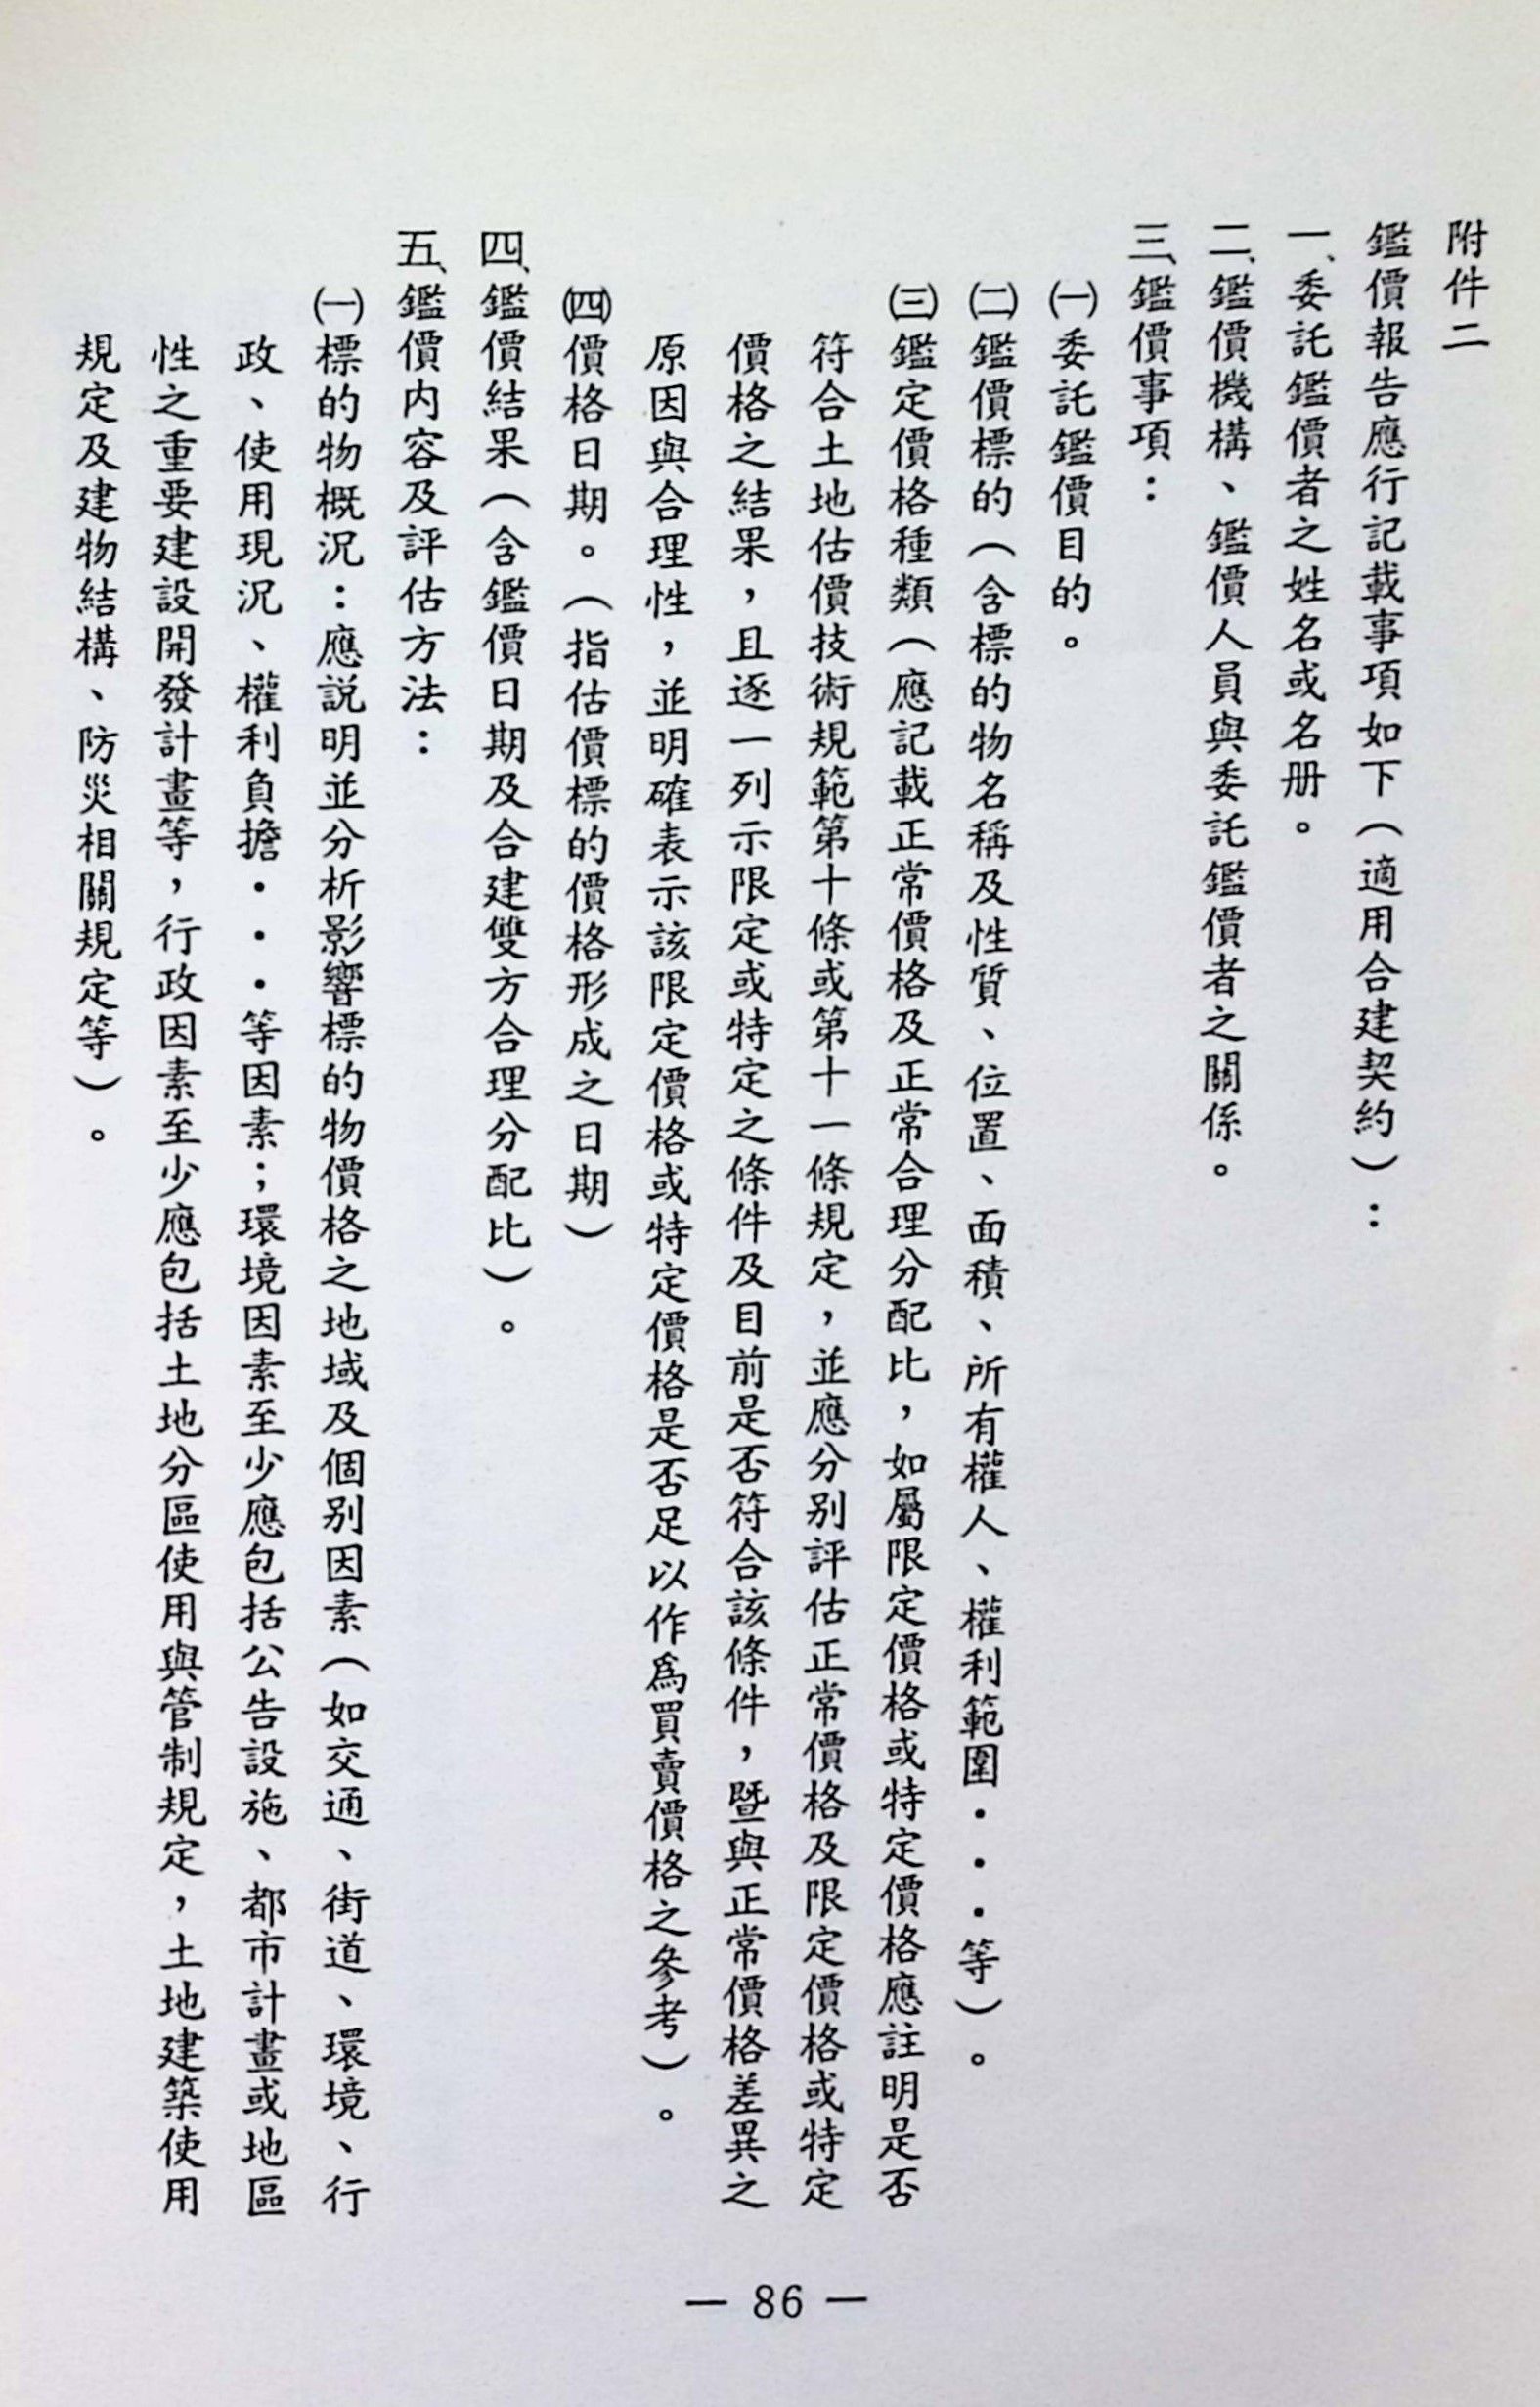 附件二
鑑價報告應行記載事項如下（適用合建契約）：
一、委託鑑價者之姓名或名册。
二、鑑價機構、鑑價人員與委託鑑價者之關係。
三、鑑價事項：
㈠委託鑑價目的。
㈡鑑價標的（含標的物名稱及性質、位置、面積、所有權人、權利範圍・・・等）。
㈢鑑定價格種類（應記載正常價格及正常合理分配比，如屬限定價格或特定價格應註明是否
符合土地估價技術規範第十條或第十一條規定，並應分別評估正常價格及限定價格或特定
價格之結果，且逐一列示限定或特定之條件及目前是否符合該條件，暨與正常價格差異之
原因與合理性，並明確表示該限定價格或特定價格是否足以作為買賣價格之參考）。
㈣價格日期。（指估價標的價格形成之日期）
四、鑑價結果（含鑑價日期及合建雙方合理分配比）。
五、鑑價内容及評估方法：
㈠標的物概況：應說明並分析影響標的物價格之地域及個別因素（如交通、街道、環境、行
政、使用現況、權利負擔・・・等因素；環境因素至少應包括公告設施、都市計畫或地區
性之重要建設開發計畫等，行政因素至少應包括土地分區使用與管制規定，土地建築使用
規定及建物結構、防災相關規定等）。
— 86 —